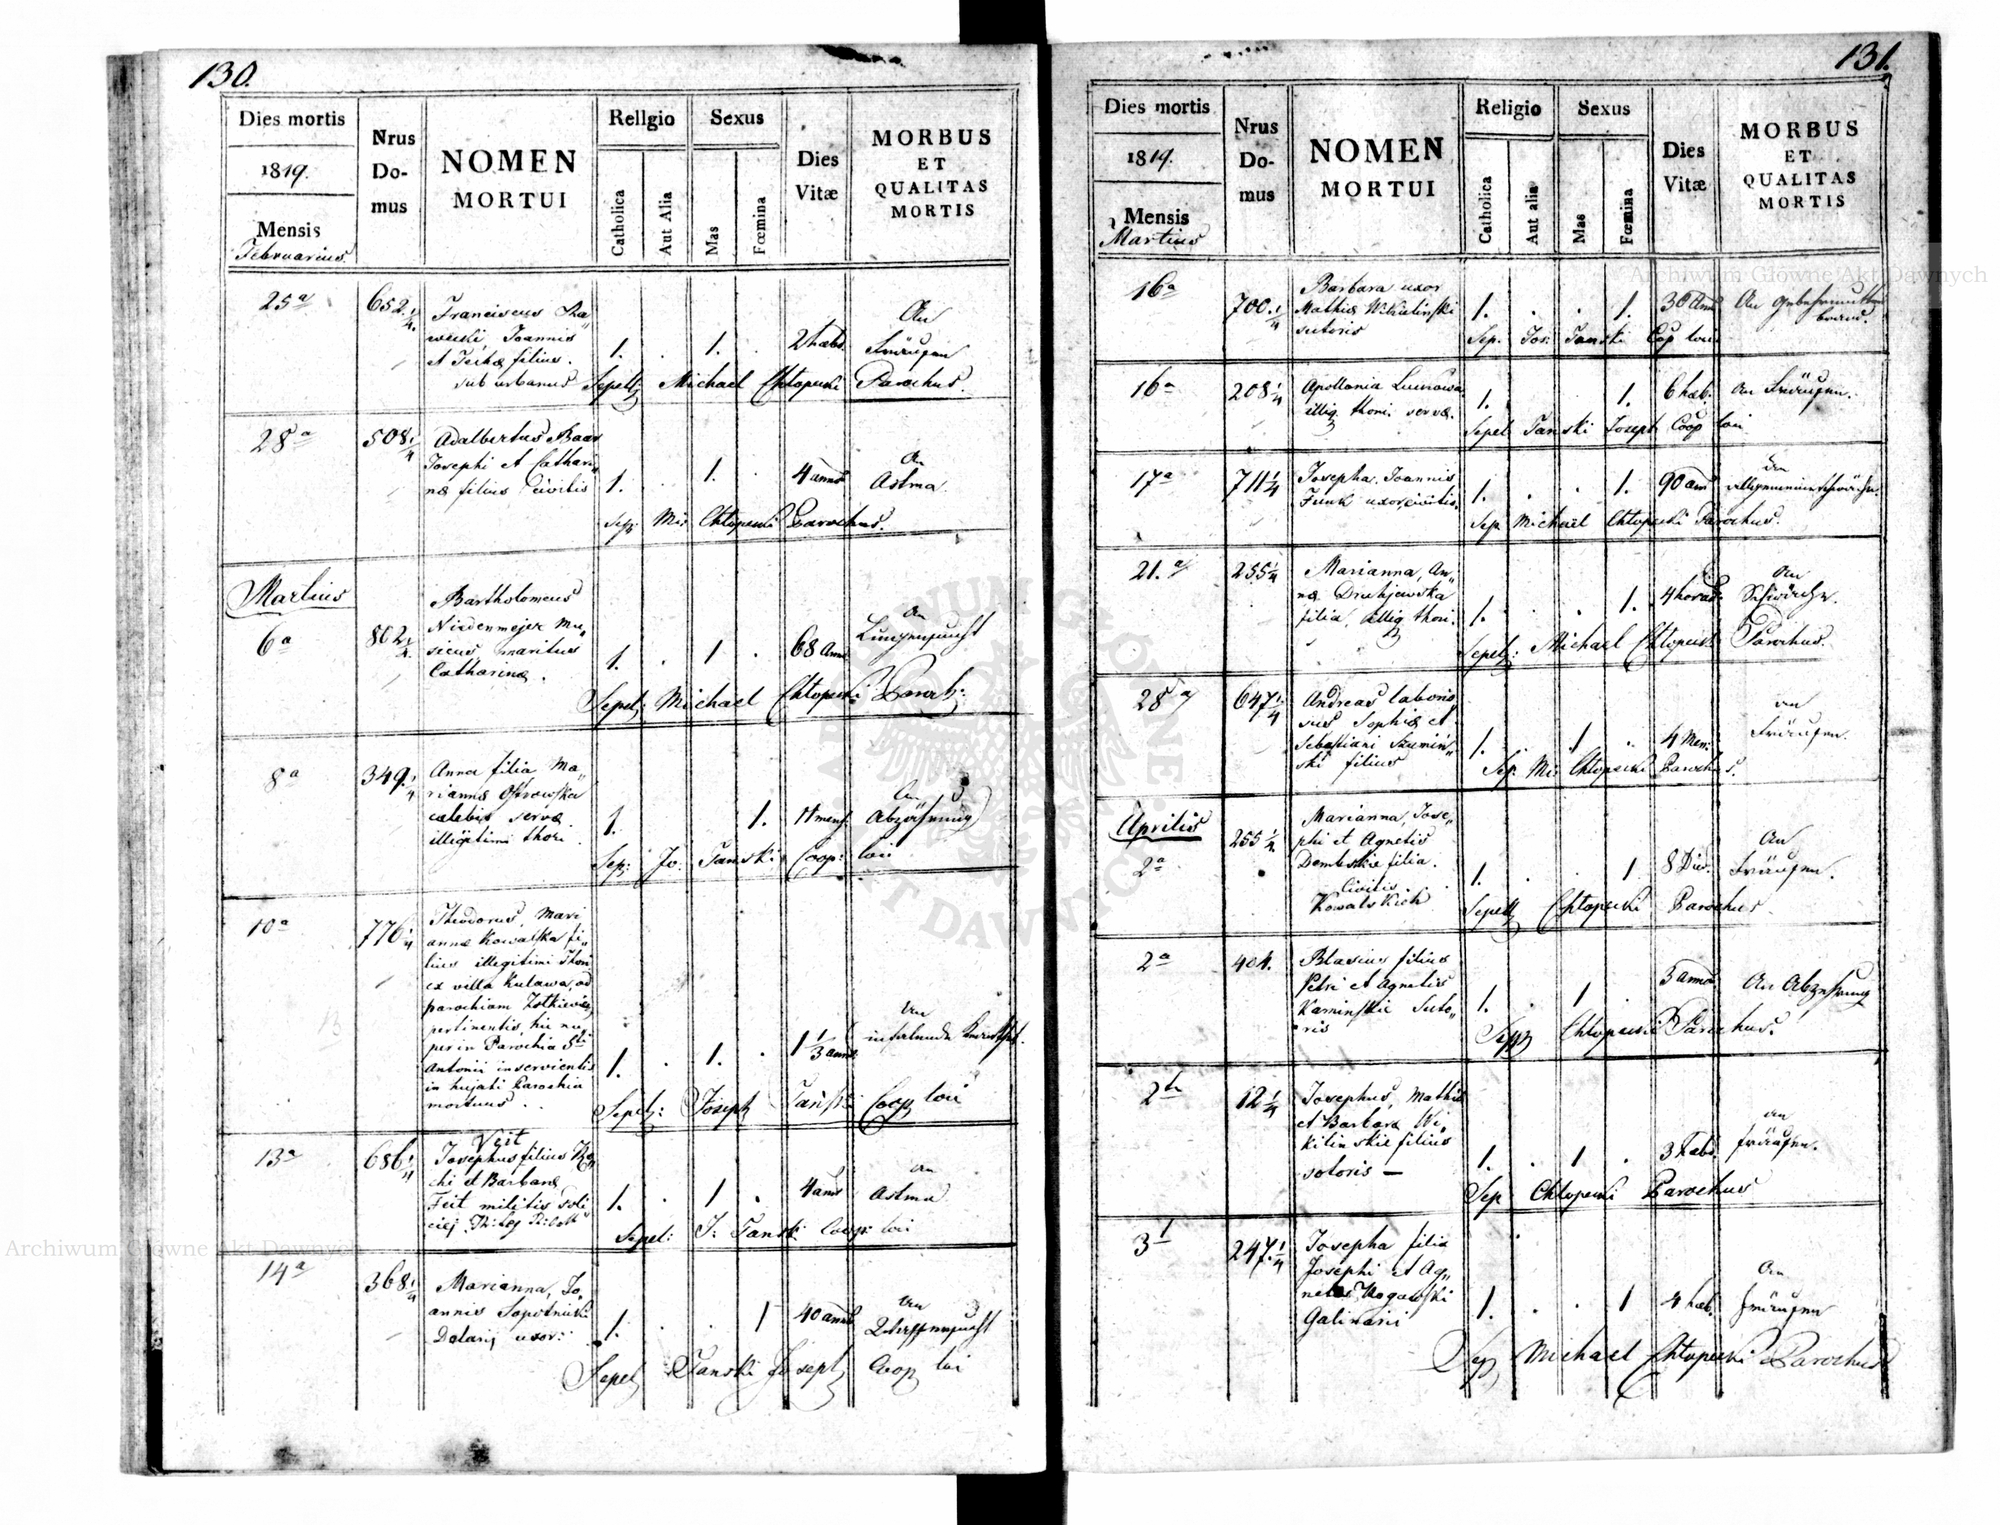 130.
Dies mortis
1819.
Mensis
Februarius
Nrus
Do-
mus
NOMEN
MORTUI
Religio
Catholica
Aut Alia
Sexus
Mas
Fœmina
Dies
Vitæ
MORBUS
ET
QUALITAS
MORTIS
25a
652 1/4
Franciscus
Joannis
et filius
sub urbanus
1.
1.
2 hebd.
An
Fraisen
Sepelt Michael Chłopecki Parochus.
28a
508 1/4
Adalbertus Baar
Josephi et Cathari„
næ filius Civilis
1.
1.
4 annor
An
Astma
Sep: Mic: Chłopecki Parochus.
Martius
6a
802 1/4
Bartholomeus
Niedenmejer Mu„
sicus maritus
Catharinæ.
1.
1
68 Anno
An
Lungensucht
Sepel: Michael Chłopecki Paroch:
8a
349 1/4
Anna filia Ma„
riannæ Ostrowska
cælebis servæ
illegitimi thori.
1.
1.
11 mens.
An
Abzährung
Sep: Jo: Tanski Coop: loci
10a
776 1/4
Theodorus, Mari
annæ Kowalska fi„
lius illegitimi thori
ex villa Kulawa, ad
parochiam Żółkiewie
pertinentis, hic nu
per in Parochia Sti
Antonii inservientis
in hujati Parochia
mortuus.
1.
1.
1 1/3 anno
An
Sepel: Joseph Tański Coop loci
13a
686 1/4
Veit
Josephus filius Ro„
chi et Barbaræ
Feit militis
1.
1
4 anno
An
Astma
Sepel: J: Tanski Coop: loci
14a
368 1/4
Marianna, Jo„
annis Sopotnicki
uxor:
1.
1
40 anno
An
Sepel Tanski Joseph Coop loci
131.
Dies mortis
1819.
Mensis
Martius
Nrus
Do-
mus
NOMEN
MORTUI
Religio
Catholica
Aut alia
Sexus
Mas
Fœmina
Dies
Vitæ
MORBUS
ET
QUALITAS
MORTIS
16a
700 1/4
Barbara uxor
Mathiæ Wikilinski
sutoris
1.
1.
30 Ann
An Gebehrmutter
brand.
Sep. Jos: Tanski Cop loci
16a
208 1/4
Apollonia
illig. thori servæ.
1.
1.
6 heb.
An Fräusen.
Sepel Tanski Joseph Coop loci
17a
711 1/4
Josepha Joannis
Funk uxor, civilis.
1.
1.
90 ann
An
allgemeine schwäche.
Sep Michael Chłopecki Parochus.
21.a
255 1/4
Marianna, An„
næ
filia, illig thori.
1.
1.
4 horas
An
Schwäche.
Sepel: Michael Chłopecki Parochus.
28a
647 1/4
Andreas laborio
sus Sophiæ et
Sebastiani Szumiń„
ski filius
1.
1
4 Men:
an
Fräusen.
Sep: Mi: Chłopecki Parochus.
Aprilis
2a
255 1/4
Marianna, Jose„
phi et Agnetis
Dembskie filia.
Civilis.
Kowalskich
1.
1
8 Dies.
An
Fräusen.
Sepelt Chłopecki Parochus
2a
404.
Blasius filius
Petri et Agnetis
Kaminskie Suto„
ris
1.
1
3 annor
An Abzehrung
Sep Chłopecki Parochus.
2a
12 1/4
Josephus, Mathiæ
et Barbara Wi„
kilinskie filius
sotoris —
1.
1
3 hebd.
an
fräusen.
Sep Chłopecki Parochus
3
247 1/4
Josepha filia
Josephi et Ag„
netis Rogalski
1.
1
4 heb.
An
fräusen
Sep Michael Chłopecki Parochus
Archiwum Główne Akt Dawnych
Archiwum Główne Akt Dawnych
ARCHIWUM GŁÓWNE AKT DAWNYCH